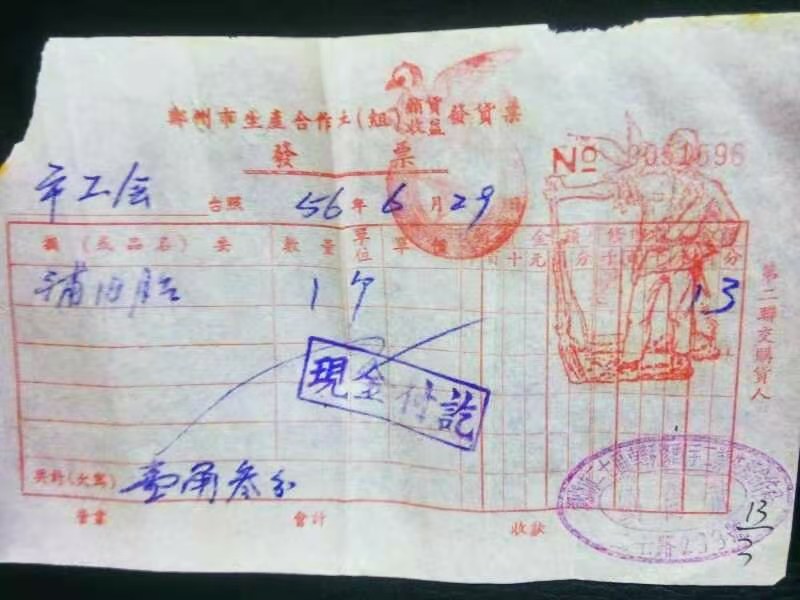 鄭州市生產合作社(組)銷貨收益發貨票
發票
No 3051596
市工会 台照 56年6月29日
摘(或品名)要 數量 單位 單價 金額
補内胎 1 个 13
現金付訖
共計(大寫) 壹角叁分
會計 收款
第二聯交購貨人
13